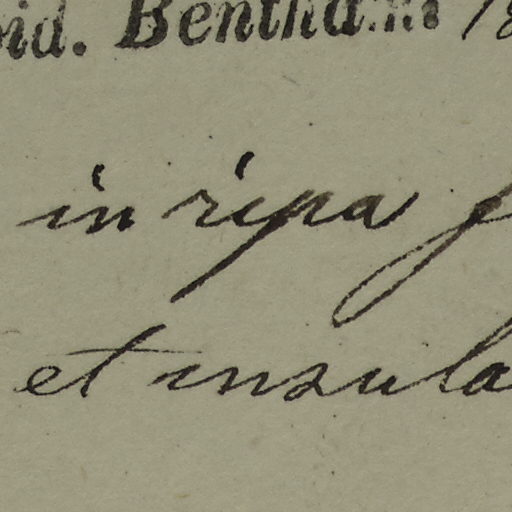 vid. Bentham
in ripa
et insula